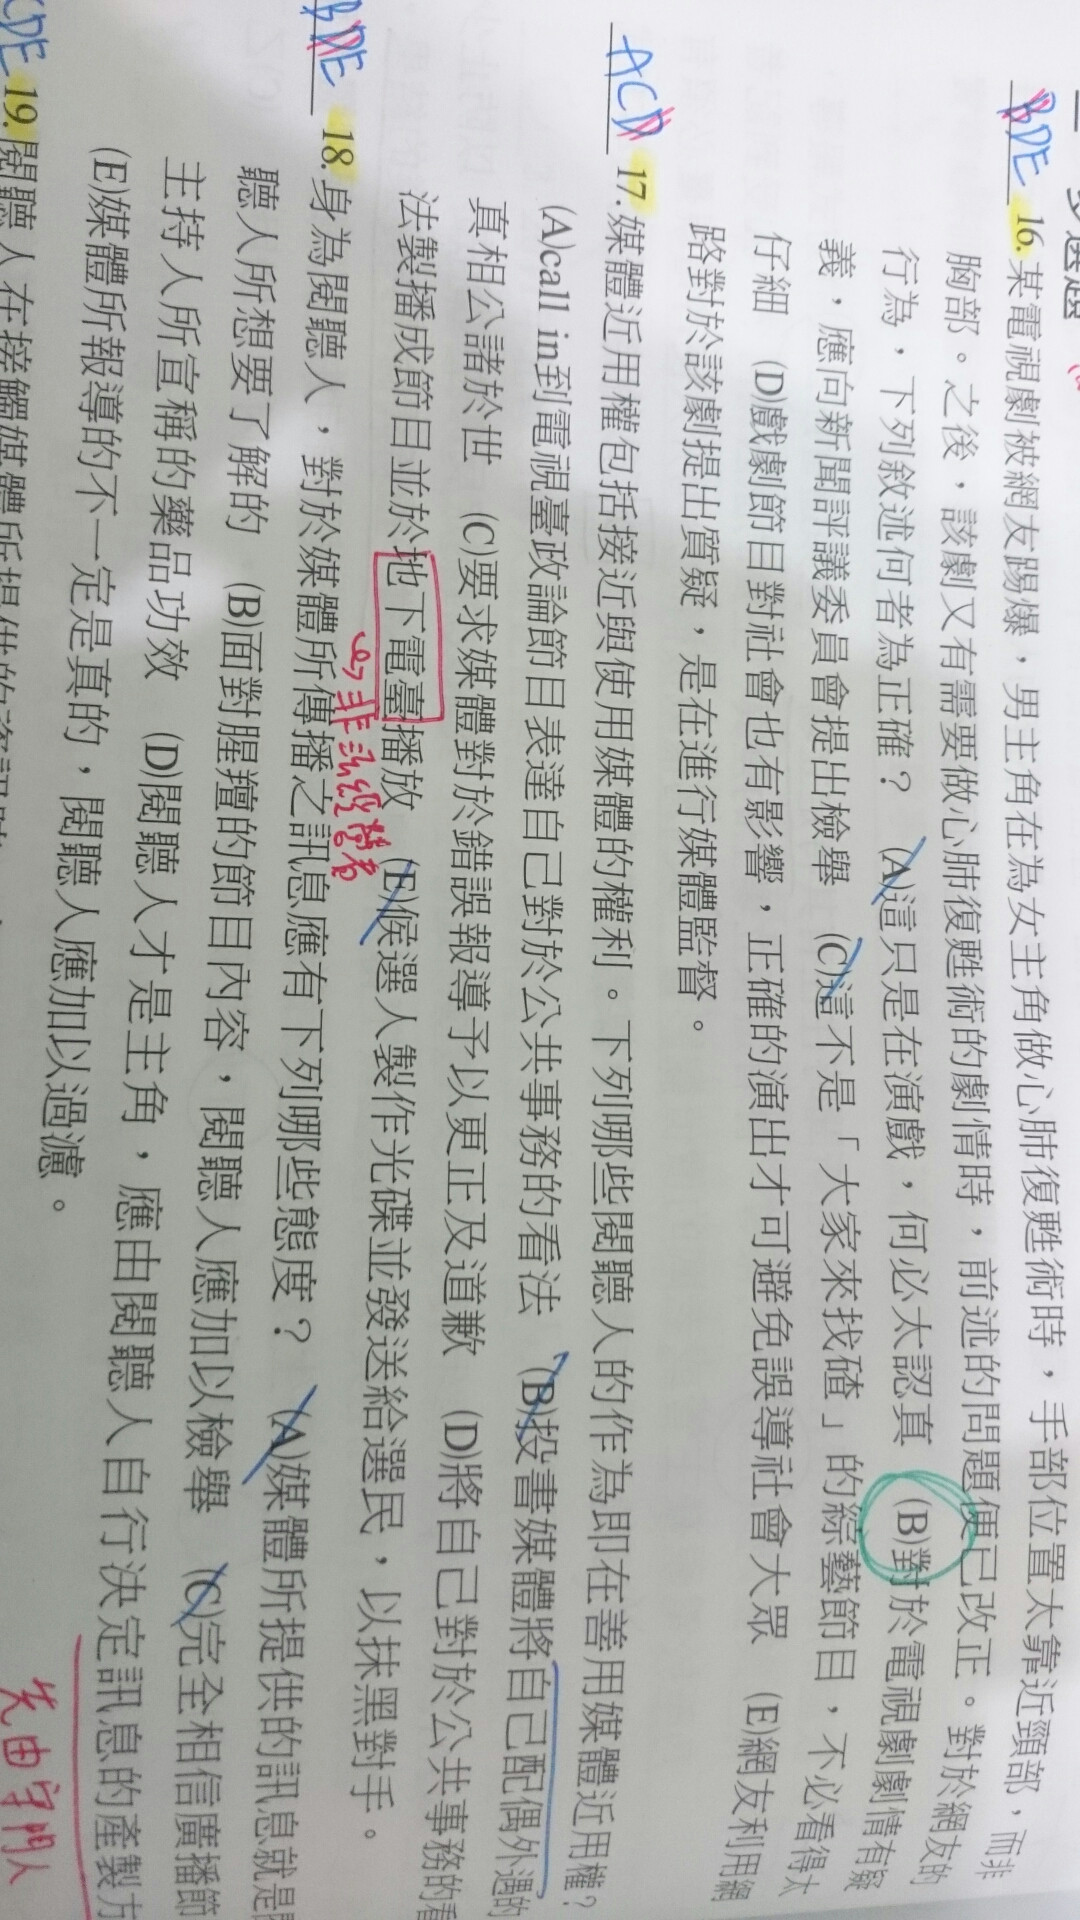 二 多選題
BDE 16.某電視劇被網友踢爆，男主角在為女主角做心肺復甦術時，手部位置太靠近頸部，而非
胸部。之後，該劇又有需要做心肺復甦術的劇情時，前述的問題便已改正。對於網友的
行為，下列敘述何者為正確？ (A)這只是在演戲，何必太認真 (B)對於電視劇劇情有疑
義，應向新聞評議委員會提出檢舉 (C)這不是「大家來找碴」的綜藝節目，不必看得太
仔細 (D)戲劇節目對社會也有影響，正確的演出才可避免誤導社會大眾 (E)網友利用網
路對於該劇提出質疑，是在進行媒體監督。
ACD 17.媒體近用權包括接近與使用媒體的權利。下列哪些閱聽人的作為即在善用媒體近用權？
(A)call in到電視臺政論節目表達自己對於公共事務的看法 (B)投書媒體將自己配偶外遇的
真相公諸於世 (C)要求媒體對於錯誤報導予以更正及道歉 (D)將自己對於公共事務的看
法製播成節目並於地下電臺播放 (E)候選人製作光碟並發送給選民，以抹黑對手。
非法經營者
BDE 18.身為閱聽人，對於媒體所傳播之訊息應有下列哪些態度？ (A)媒體所提供的訊息就是閱
聽人所想要了解的 (B)面對腥羶的節目內容，閱聽人應加以檢舉 (C)完全相信廣播節
主持人所宣稱的藥品功效 (D)閱聽人才是主角，應由閱聽人自行決定訊息的產製方
(E)媒體所報導的不一定是真的，閱聽人應加以過濾。
先由守門人
CDE 19.閱聽人在接觸媒體所提供的資訊時